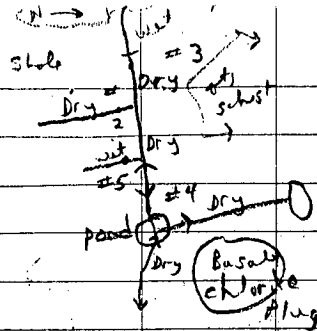 N →
wet
#3
Shale
Dry
qtz
schist
Dry
2
Dry
wet
#5
#4
Dry
pond
Dry
Basalt
chlorite
Plug